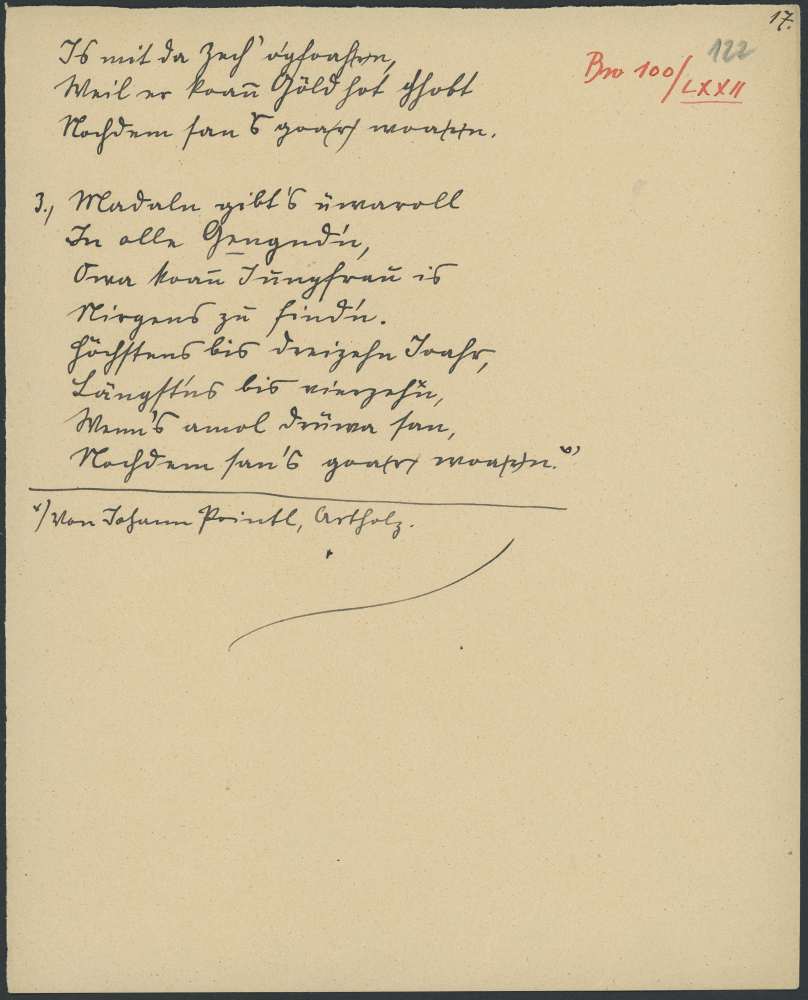 17.
122
Bro 100/LXXII
Is mit da Zech' ógfoah(r)n,
Weil er koan̄ Göld hot ghobt
Nochdem san's goa(r) woa(r)n.
3., Madaln gibt's üwaroll
In olle Gengnd'n,
Owa koan̄ Jungfrau is
Nirgens zu find'n.
Höchstens bis dreizehn Joahr,
Längst'ns bis vierzehn,
Wenn's amol drüwa san,
Nochdem san's goa(r) woa(r)n. *)
*) Von Johann Pointl, Artholz.